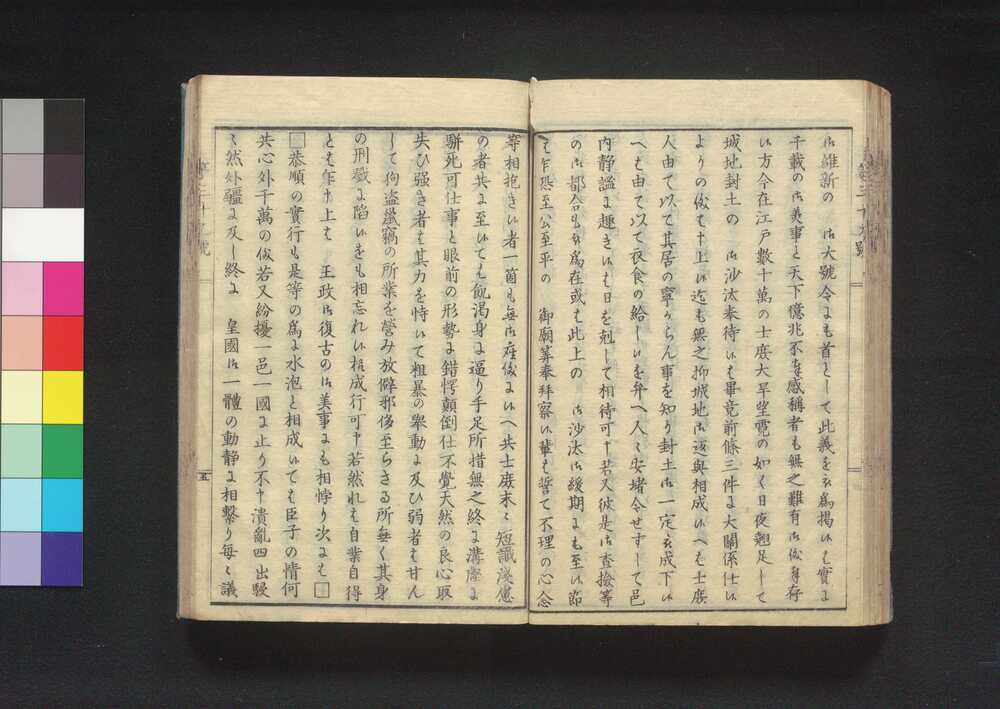 御維新の 御大號令にも首として此義を被爲揭候も實に
千載の御美事と天下億兆不感稱者も無之難有御儀奉存
候方今在江戸數十萬の士庶大旱望霓の如く日夜翹足して
城地封土の 御沙汰奉待候も畢竟前條三件に大關係仕候
よりの儀にて申上候迄も無之抑城地御返與相成候へも士庶
人由て以て其居の寧からん事を知り封土御一定被成下候
へも由て以て衣食の給し候を弁へ人々安堵令せずして邑
內靜謐に趣き候も日を剋して相待可申若又彼是御査撿等
の御都合も被爲在或も此上の 御沙汰御緩期にも至候節
も乍恐至公至平の 御廟筭奉拜察候輩も誓て不理の心念
等相抱き候者一箇も無御座儀に候へ共士庶末々短識淺慮
の者共に至候ても飢渴身に逼り手足所措無之終に溝壑に
駢死可仕事と眼前の形勢に錯愕顚倒仕不覺天然の良心取
失ひ强き者も其力を恃候て粗暴の擧動に及ひ弱者も甘ん
して狗盜鼠竊の所業を營み放僻邪侈至らさる所無く其身
の刑戮に陷候をも相忘れ候樣成行可申若然れも自業自得
とも乍申上も 王政御復古の御美事にも相悖り次にも□
□恭順の實行も是等の爲に水泡と相成候ても臣子の情何
共心外千萬の儀若又紛擾一邑一國に止り不申潰亂四出騷
々然外疆に及し終に 皇國御一體の動靜に相繫り每々議
五